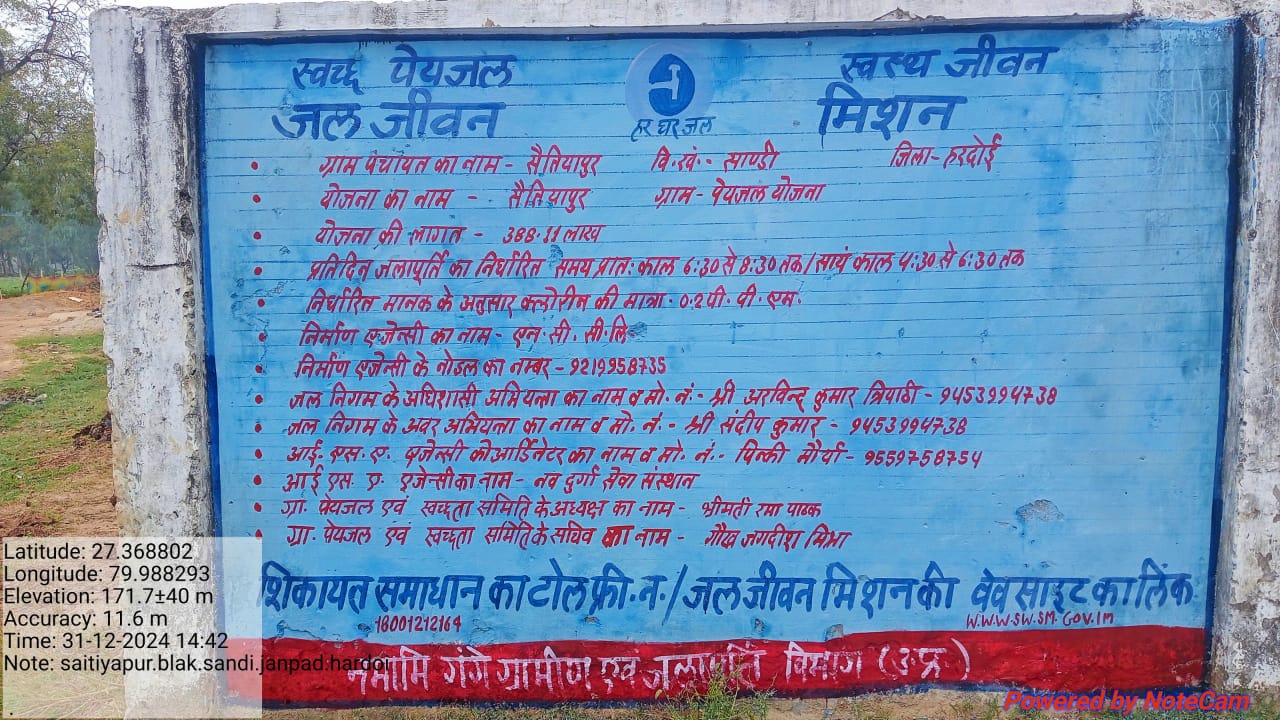 स्वच्छ पेयजल स्वस्थ जीवन
जल जीवन हर घर जल मिशन
• ग्राम पंचायत का नाम - सैतियापुर वि.खं.- साण्डी जिला- हरदोई
• योजना का नाम - सैतियापुर ग्राम- पेयजल योजना
• योजना की लागत - 388.11 लाख
• प्रतिदिन जलापूर्ति का निर्धारित समय प्रात: काल 6:30 से 8:30 तक / सायं काल 4:30 से 6:30 तक
• निर्धारित मानक के अनुसार क्लोरीन की मात्रा. 0.2 पी. पी. एम.
• निर्माण एजेन्सी का नाम - एन. सी. सी. लि.
• निर्माण एजेन्सी के नोडल का नम्बर - 9219958735
• जल निगम के अधिशासी अभियन्ता का नाम व मो. नं:- श्री अरविन्द कुमार त्रिपाठी - 9453994738
• जल निगम के अवर अभियन्ता का नाम व मो. नं.- श्री संदीप कुमार - 9453994738
• आई. एस. ए. एजेन्सी कोआर्डिनेटर का नाम व मो. नं.. पिन्की मौर्या - 9559758754
• आई एस. ए. एजेन्सी का नाम - नव दुर्गा सेवा संस्थान
• ग्रा. पेयजल एवं स्वच्छता समिति के अध्यक्ष का नाम - श्रीमती रमा पाठक
• ग्रा. पेयजल एवं स्वच्छता समिति के सचिव का नाम - जगदीश मिश्रा
शिकायत समाधान का टोल फ्री. न. / जल जीवन मिशन की वेव साइट का लिंक
18001212164 W.W.W.SW.SM.GOV.IM
नमामि गंगे ग्रामीण एवं जलापूर्ति विभाग (उ.प्र.)
Latitude: 27.368802
Longitude: 79.988293
Elevation: 171.7±40 m
Accuracy: 11.6 m
Time: 31-12-2024 14:42
Note: saitiyapur.blak.sandi.janpad.hardoi
Powered by NoteCam